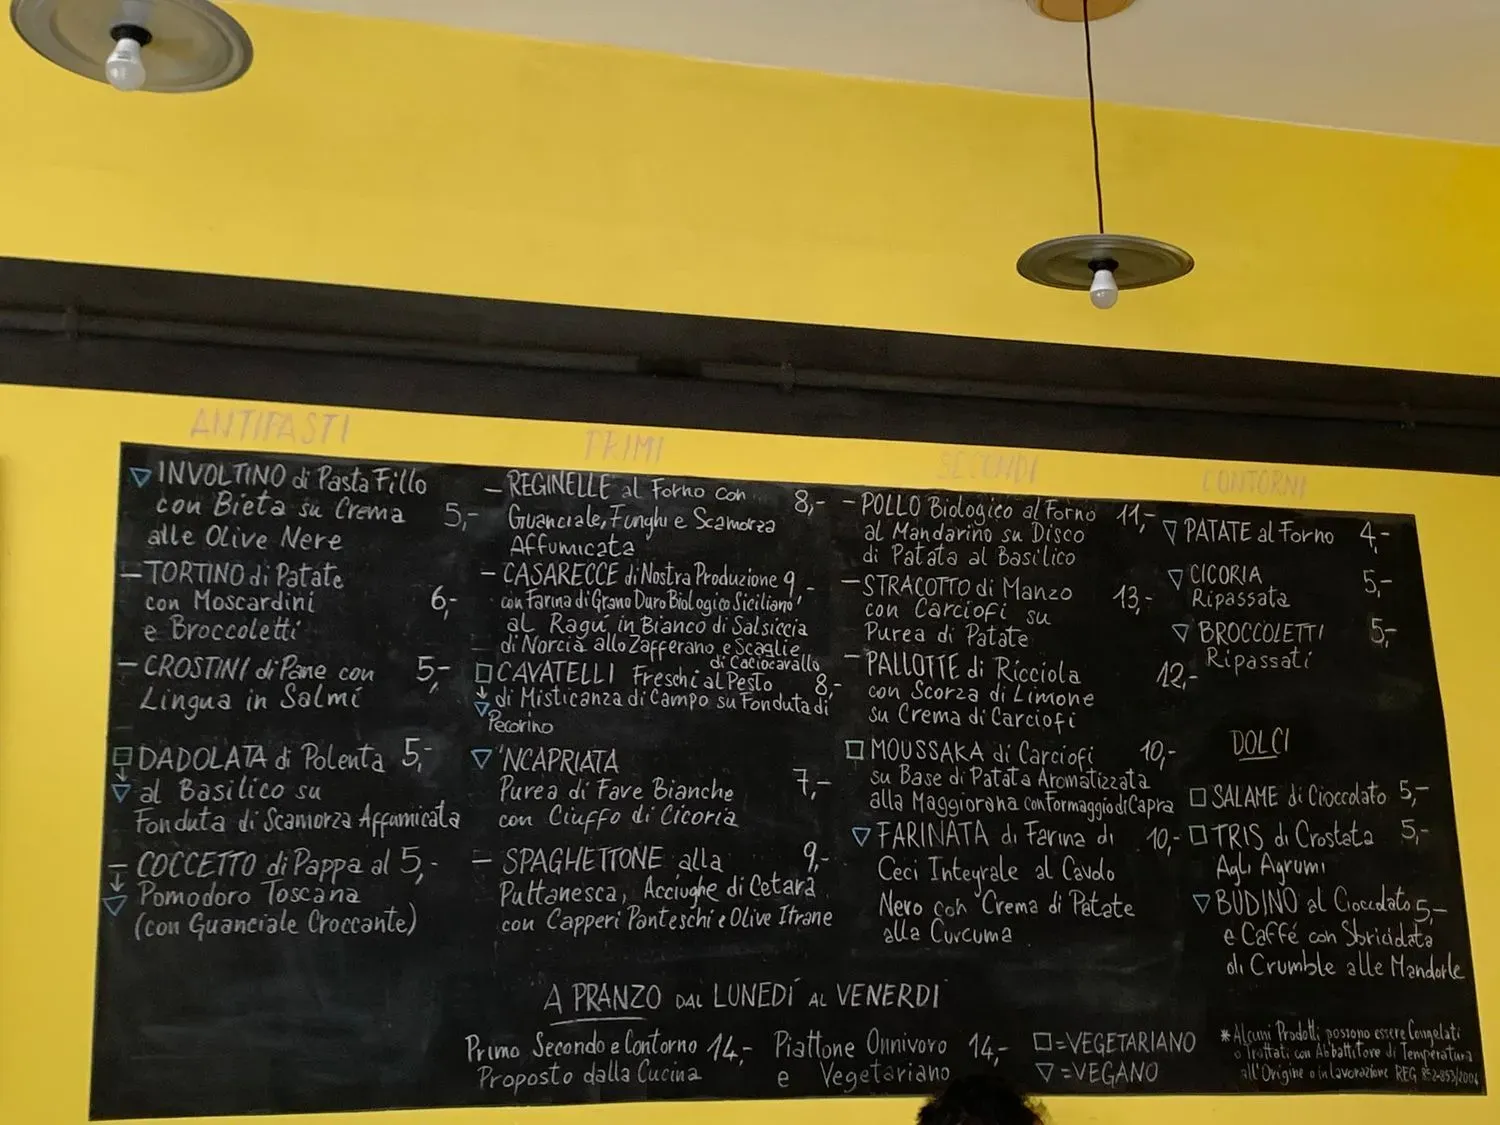 ANTIPASTI
INVOLTINO di Pasta Fillo
con Bieta su Crema 5,-
alle Olive Nere
– TORTINO di Patate
con Moscardini 6,-
e Broccoletti
– CROSTINI di Pane con 5,-
Lingua in Salmí
DADOLATA di Polenta 5,-
al Basilico su
Fonduta di Scamorza Affumicata
– COCCETTO di Pappa al 5,-
Pomodoro Toscana
(con Guanciale Croccante)
PRIMI
– REGINELLE al Forno con 8,-
Guanciale, Funghi e Scamorza
Affumicata
– CASARECCE di Nostra Produzione 9,-
con Farina di Grano Duro Biologico Siciliano
al Ragú in Bianco di Salsiccia
di Norcia allo Zafferano e Scaglie
di Caciocavallo
CAVATELLI Freschi al Pesto 8,-
di Misticanza di Campo su Fonduta di
Pecorino
'NCAPRIATA
Purea di Fave Bianche 7,-
con Ciuffo di Cicoria
– SPAGHETTONE alla 9,-
Puttanesca, Acciughe di Cetara
con Capperi Panteschi e Olive Itrane
SECONDI
– POLLO Biologico al Forno 11,-
al Mandarino su Disco
di Patata al Basilico
– STRACOTTO di Manzo 13,-
con Carciofi su
Purea di Patate
– PALLOTTE di Ricciola 12,-
con Scorza di Limone
su Crema di Carciofi
MOUSSAKA di Carciofi 10,-
su Base di Patata Aromatizzata
alla Maggiorana con Formaggio di Capra
FARINATA di Farina di 10,-
Ceci Integrale al Cavolo
Nero con Crema di Patate
alla Curcuma
CONTORNI
PATATE al Forno 4,-
CICORIA 5,-
Ripassata
BROCCOLETTI 5,-
Ripassati
DOLCI
SALAME di Cioccolato 5,-
TRIS di Crostata 5,-
Agli Agrumi
BUDINO al Cioccolato 5,-
e Caffé con Sbriciolata
di Crumble alle Mandorle
A PRANZO DAL LUNEDÍ AL VENERDÍ
Primo Secondo e Contorno 14,-
Proposto dalla Cucina
Piattone Onnivoro 14,-
e Vegetariano
=VEGETARIANO
=VEGANO
* Alcuni Prodotti possono essere Congelati
o Trattati con Abbattitore di Temperatura
all'Origine o in lavorazione REG 852-853/2004